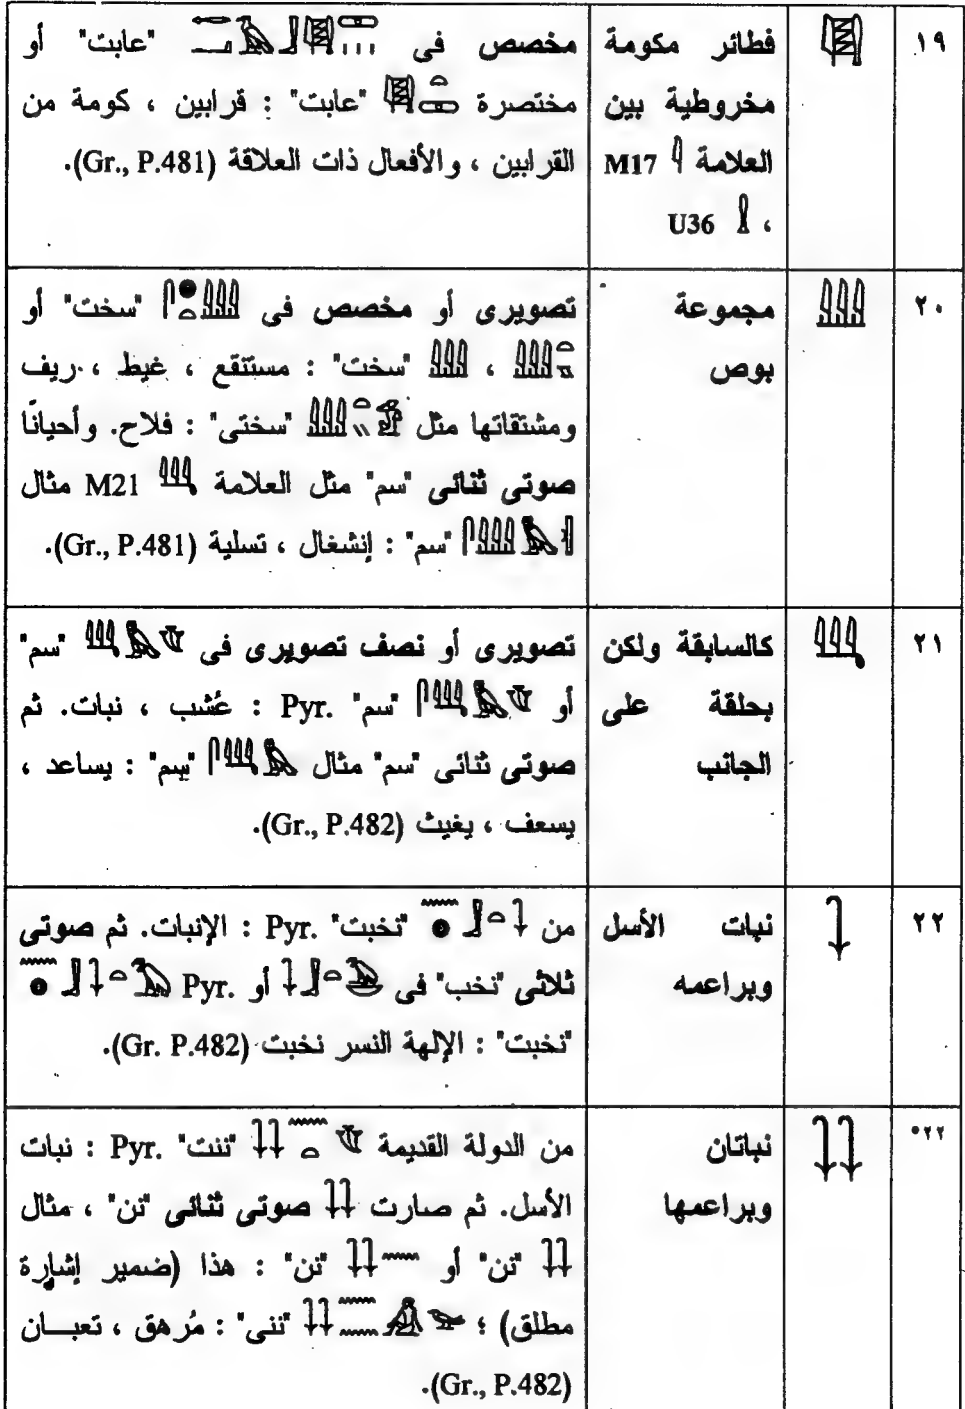 ١٩
فطائر مكومة
مخروطية بين
العلامة M17
، U36
مخصص فى "عابت" أو
مختصرة "عابت" : قرابين ، كومة من
القرابين ، والأفعال ذات العلاقة (Gr., P.481).
٢٠
مجموعة
بوص
تصويرى أو مخصص فى "سخت" أو
، "سخت" : مستنقع ، غيط ، ريف
ومشتقاتها مثل "سختى" : فلاح. وأحيانًا
صوتى ثنائى "سم" مثل العلامة M21 مثال
"سم" : إنشغال ، تسلية (Gr., P.481).
٢١
كالسابقة ولكن
بحلقة على
الجانب
تصويرى أو نصف تصويرى فى "سم"
أو "سم" Pyr. : عُشب ، نبات. ثم
صوتى ثنائى "سم" مثال "سم" : يساعد ،
يسعف ، يغيث (Gr., P.482).
٢٢
نبات الأسل
وبراعمه
من "نخبت" Pyr. : الإنبات. ثم صوتى
ثلاثى "نخب" فى أو Pyr.
"نخبت" : الإلهة النسر نخبت (Gr. P.482).
٢٢*
نباتان
وبراعمها
من الدولة القديمة "ننت" Pyr. : نبات
الأسل. ثم صارت صوتى ثنائى "نن" ، مثال
"نن" أو "نن" : هذا (ضمير إشارة
مطلق) ؛ "ننى" : مُرهق ، تعبـــان
(Gr., P.482).